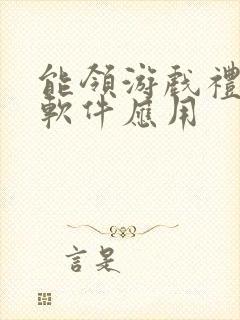 能領游戲禮
軟件應用
言是